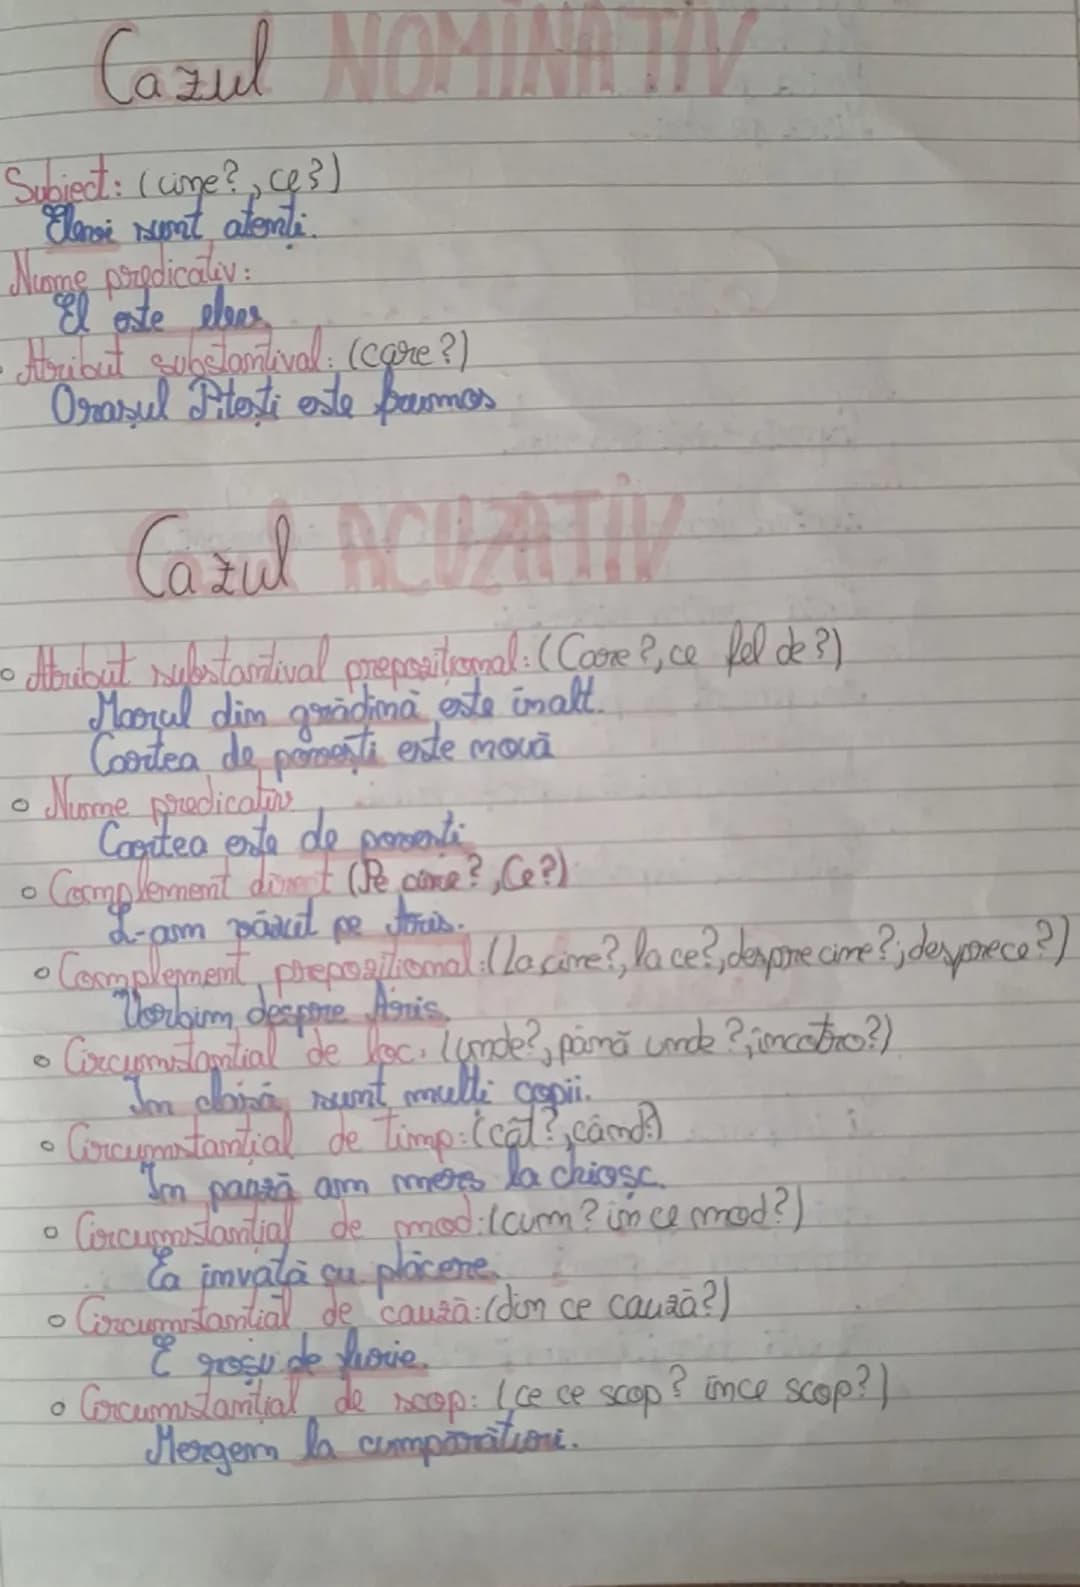 Cazul NOMINATIV
Subiect: (cine?, ce?)
Elevii sunt atenti.
Nume predicativ:
El este elev
Atribut substantival: (care?)
Orașul Pitești este frumos
Cazul ACUZATIV
Atribut substantival prepozițional: (Care?, ce fel de?)
Marul din grădină este înalt.
Cartea de povești este nouă
Nume predicativ
Cartea este de povesti
Complement direct (Pe cine?, Ce?)
L-am văzut pe
Complement prepozițional: (La cine?, la ce?, despre cine?; despre ce?)
Vorbim despre Aris.
Circumstanțial de loc: (unde?, până unde?, incotro?)
In clasă sunt multi copii.
Circumstanțial de timp: (cât?, când?)
In pauză am mers la chioșc.
Circumstanțial de mod: (cum? in ce mod?)
Ea invață cu plăcere.
Circumstanțial de cauză: (din ce cauză?)
E roșu de furie.
Circumstanțial de scop: (ce ce scop? in ce scop?)
Mergem la cumpărături.